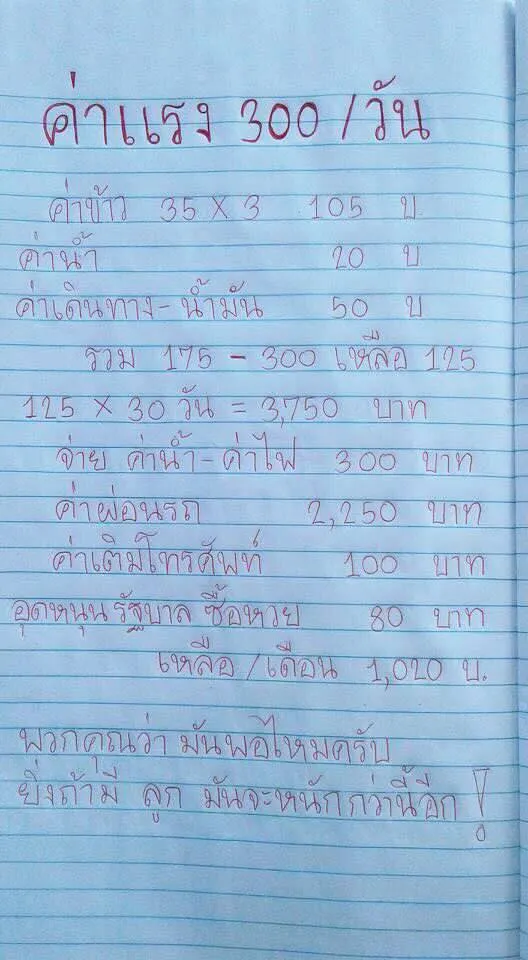 ค่าแรง 300 /วัน
ค่าข้าว 35 x 3 105 บ
ค่าน้ำ 20 บ
ค่าเดินทาง-น้ำมัน 50 บ
รวม 175 - 300 เหลือ 125
125 x 30 วัน = 3,750 บาท
จ่าย ค่าน้ำ-ค่าไฟ 300 บาท
ค่าผ่อนรถ 2,250 บาท
ค่าเติมโทรศัพท์ 100 บาท
อุดหนุนรัฐบาล ซื้อหวย 80 บาท
เหลือ/เดือน 1,020 บ.
พวกคุณว่า มันพอไหมครับ
ยิ่งถ้ามี ลูก มันจะหนักกว่านี้อีก!